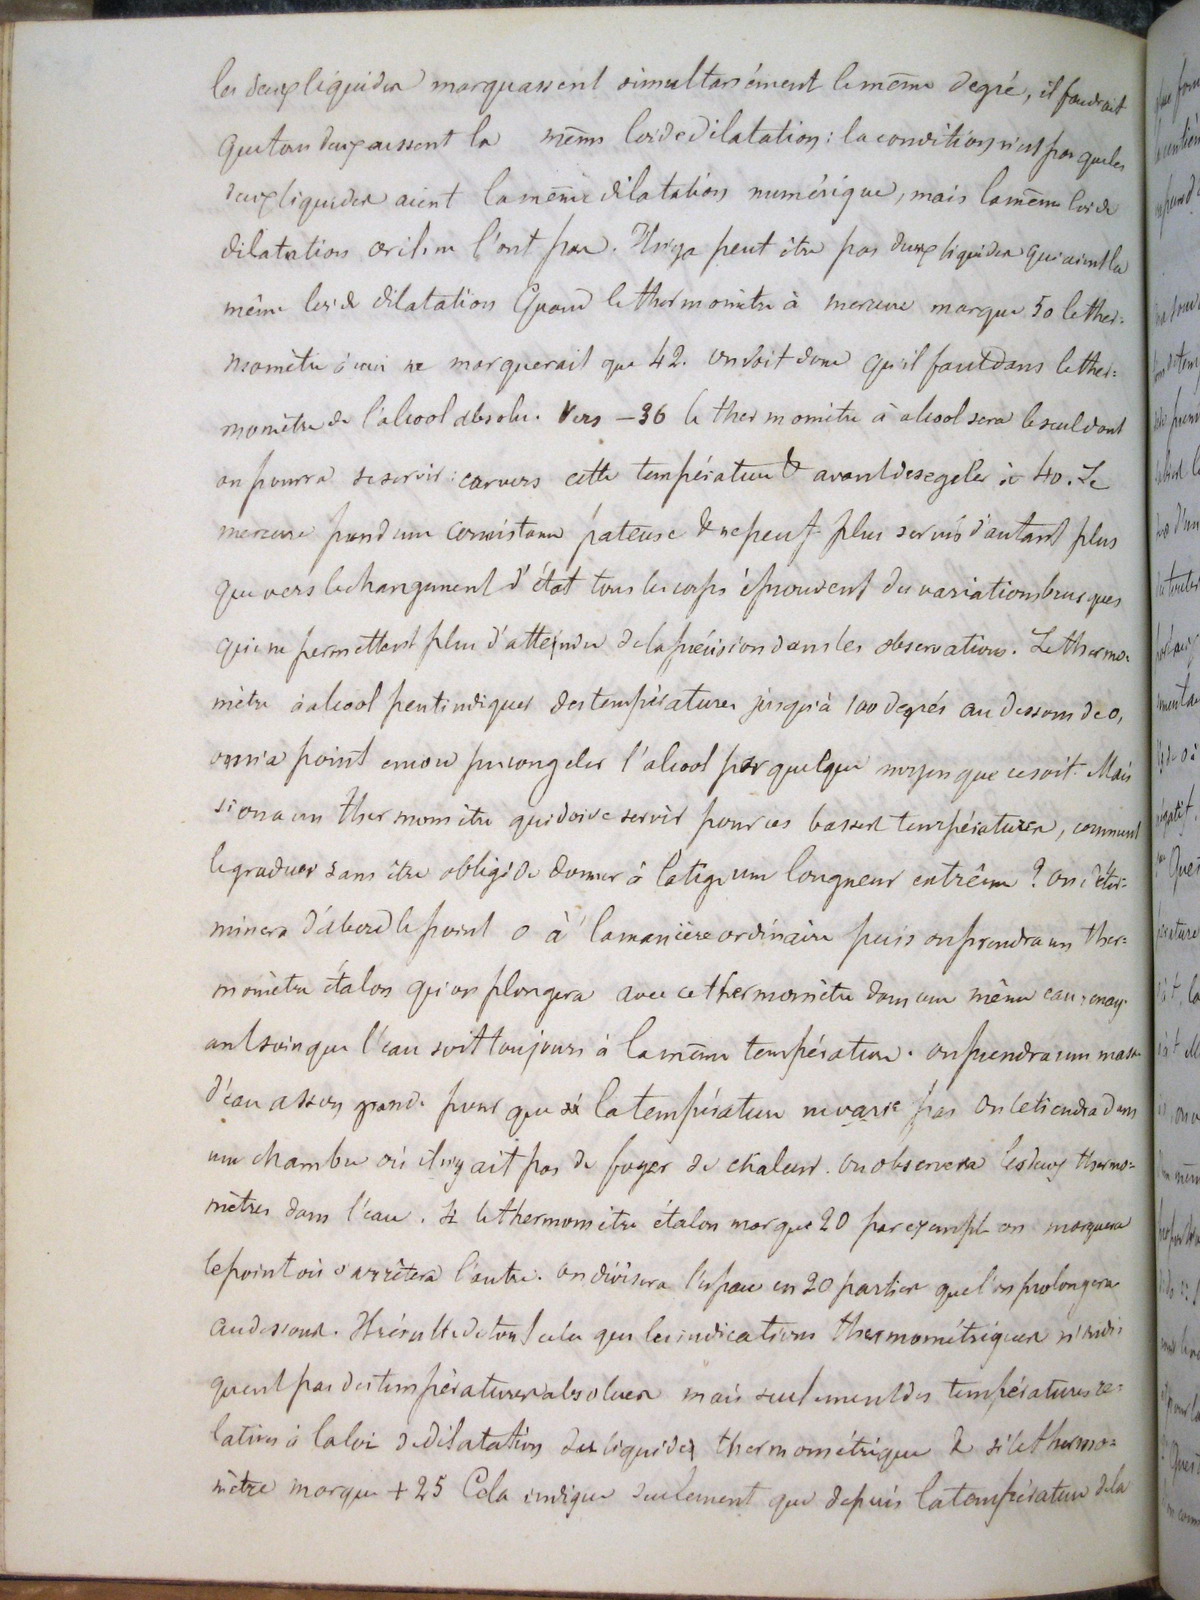 les deux liquides marquassent simultanément le même degré, il faudrait
que tous deux eussent la même loi de dilatation : la condition n'est pas que les
deux liquides aient la même dilatation numérique, mais la même loi de
dilatation or ils ne l'ont pas. Il n'y a peut être pas deux liquides qui aient la
même loi de dilatation Quand le thermomètre à mercure marque 50 le ther=
momètre à ne marquerait que 42. on voit donc qu'il faut dans le ther=
momètre de l'alcool absolu. Vers -36 le thermomètre à alcool sera le seul dont
on pourra se servir : car vers cette température & avant de se geler à 40. Le
mercure prend une consistance pateuse & ne peut plus servir d'autant plus
que vers le changement d'état tous les corps éprouvent des variations brusques
qui ne permettent plus d'atteindre de la précision dans les observations. Le thermo=
mètre à alcool peut indiquer des températures jusqu'à 100 degrés au dessous de 0,
on n'a point encore pu congeler l'alcool par quelque moyen que ce soit. Mais
si on a un thermomètre qui doive servir pour ces basses températures, comment
le graduer sans être obligé de donner à la tige une longueur extrême ? On déter=
minera d'abord le point 0 à la manière ordinaire puis on prendra un ther=
momètre étalon qu'on plongera avec ce thermomètre dans une même eau, en ay
ant soin que l'eau soit toujours à la même température. on prendra une masse
d'eau assez grande pour que la température ne varie pas On le tiendra dans
une chambre où il n'y ait pas de foyer de chaleur. on observera les deux thermo=
mètres dans l'eau. Si le thermomètre étalon marque 20 par exemple on marquera
le point où s'arrêtera l'autre. on divisera l'espace en 20 parties que l'on prolongera
au dessous. Il résulte de tout cela que les indications thermométriques n'indi=
quent pas des températures absolues mais seulement des températures re=
latives à la loi de dilatation du liquide thermométrique & si le thermo=
mètre marque +25 Cela indique seulement que depuis la température de la